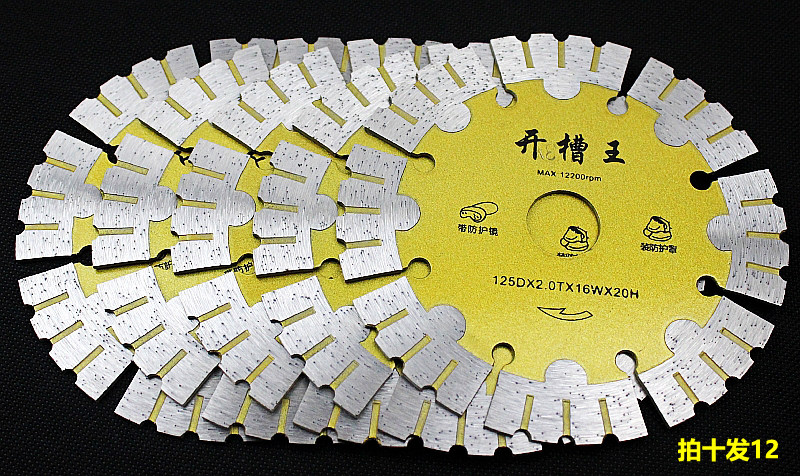 开槽王
MAX 12200rpm
带防护镜
装防护罩
125DX2.0TX16WX20H
拍十发12